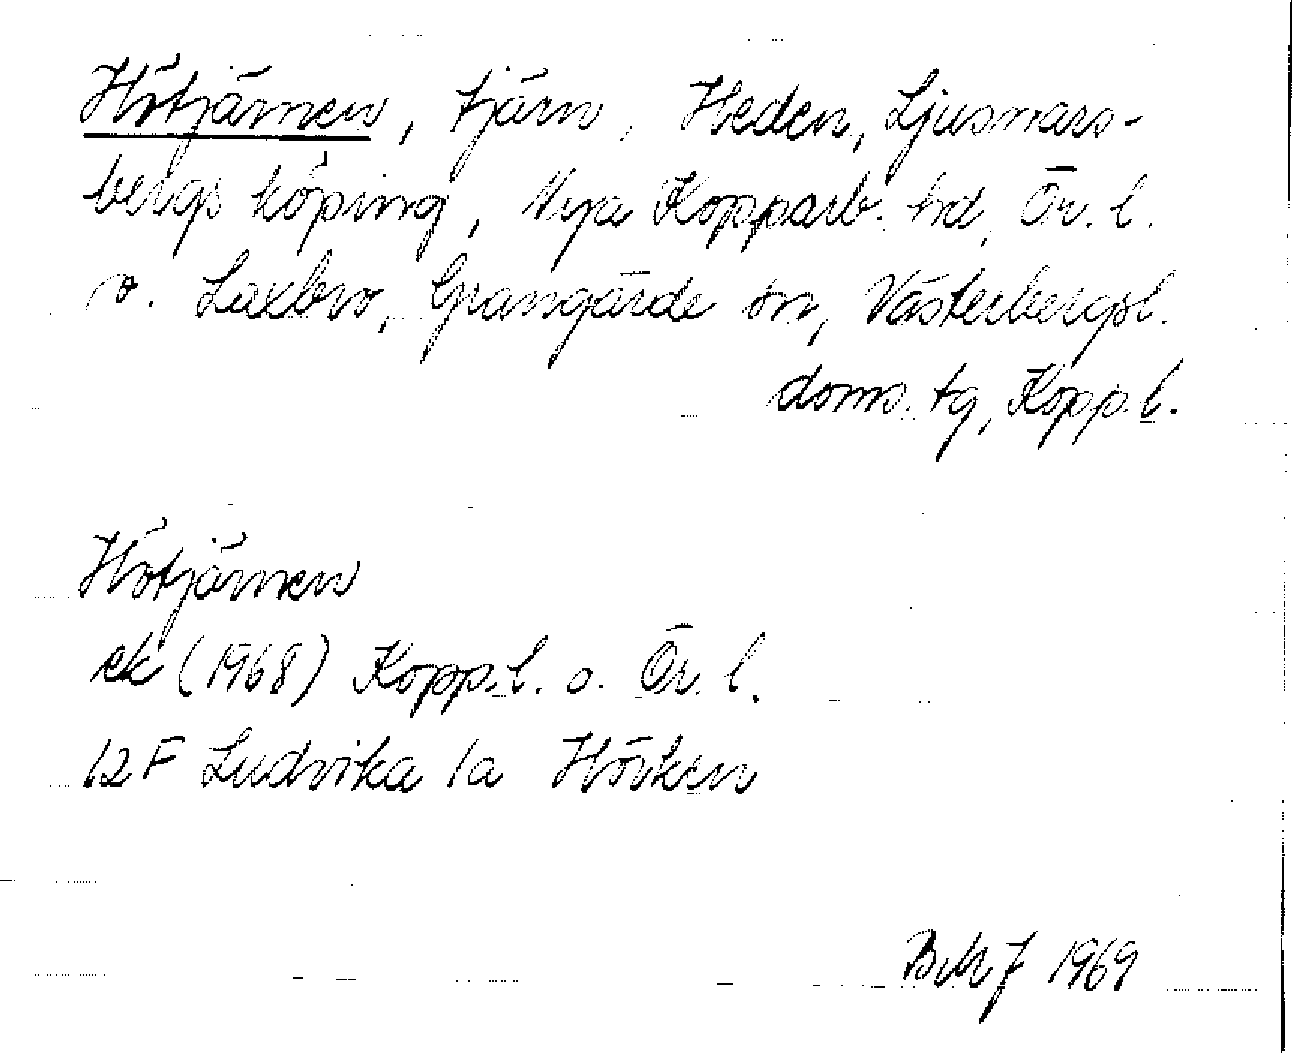 Hötjärnen, tjärn, Heden, Ljusnars-
bergs köping, Nya Kopparb. hd, Ör. l.
o. Laxbro, Grangärde sn, Västerbergsl.
doms. tg, Kopp. l.
Hötjärnen
ek (1968) Kopp. l. o. Ör. l.
12 F Ludvika 1a Hörken
1969